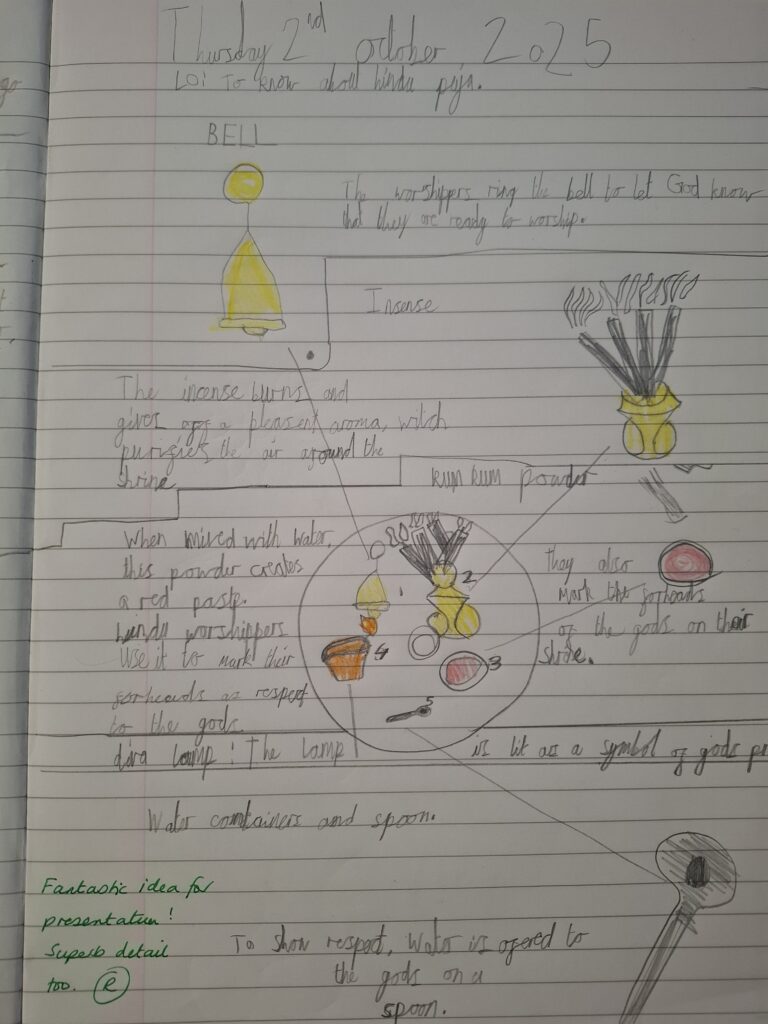 Thursday 2nd october 2025
LO: To know about hindu puja.
BELL
The worshippers ring the bell to let God know
that they are ready to worship.
Insense
The incense burns and
gives off a pleasent aroma, witch
purifies the air around the
shrine
kum kum powder
When mixed with water,
this powder creates
a red paste.
hindu worshippers
Use it to mark their
forheads as respect
to the gods
they also
mark the forheads
of the gods on their
shrine.
2
4
3
5
diva lamp: The lamp is lit as a symbol of gods
Water containers and spoon.
Fantastic idea for
presentation!
Superb detail
too. e
To show respect, Water is offered to
the gods on a
spoon.